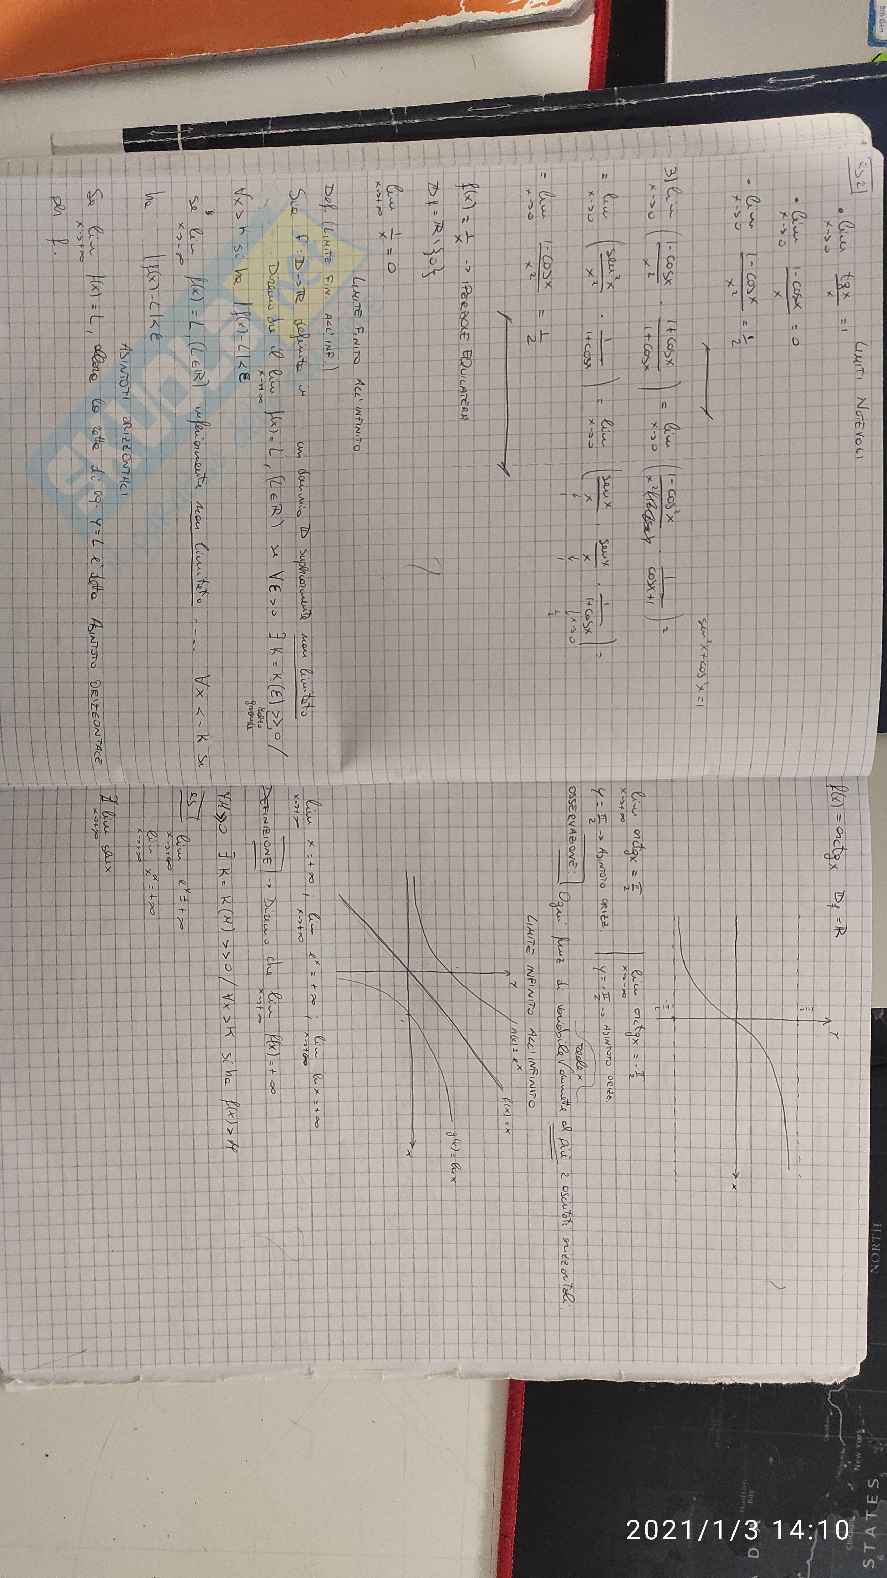 ES 2]
LIMITI NOTEVOLI
• lim x→0 tgx/x = 1
• lim x→0 (1-cosx)/x = 0
• lim x→0 (1-cosx)/x² = 1/2
sen²x+cos²x=1
3) lim x→0 ((1-cosx)/x² · (1+cosx)/(1+cosx)) = lim x→0 ((1-cos²x)/x² · 1/(cosx+1)) =
= lim x→0 (sen²x/x² · 1/(1+cosx)) = lim x→0 (senx/x · senx/x · 1/(1+cosx)) =
= lim x→0 (1-cosx)/x² = 1/2
f(x) = 1/x → IPERBOLE EQUILATERA
Df = R\{0}
lim x→+∞ 1/x = 0
LIMITE FINITO ALL'INFINITO
Def. (LIMITE FIN. ALL'INF.)
Sia f: D→R definita in un dominio D superiormente non limitato
Diciamo che il lim x→+∞ f(x)=L, (L∈R) se ∀ε>0 ∃ K=K(ε)>>0 /
∀x>K si ha |f(x)-L|<ε
se lim x→-∞ f(x)=L, (L∈R) inferiormente non limitato .... ∀x<-K si
ha |f(x)-L|<ε
ASINTOTI ORIZZONTALI
Se lim x→+∞ f(x)=L, allora la retta di eq. y=L è detta ASINTOTO ORIZZONTALE
di f.
f(x)=arctgx Df=R
y
x
lim x→+∞ arctgx = π/2 | lim x→-∞ arctgx = -π/2
y=π/2 → ASINTOTO ORIZZ. | y=-π/2 → ASINTOTO ORIZZ.
OSSERVAZIONE: Ogni funz di variabile ammette al più 2 asintoti orizzontali.
LIMITE INFINITO ALL'INFINITO
y
f(x)=eˣ
f(x)=x
g(x)=lnx
x
lim x→+∞ x=+∞, lim x→+∞ eˣ=+∞, lim x→+∞ lnx=+∞
DEFINIZIONE → Diciamo che lim x→+∞ f(x)=+∞
∀M>0 ∃ K=K(M)>>0 / ∀x>K si ha f(x)>M
ES
lim x→+∞ eˣ=+∞
lim x→+∞ xˣ=+∞
∄ lim x→+∞ senx
SKUOLA.net
2021/1/3 14:10
NORTH
STATES
New York